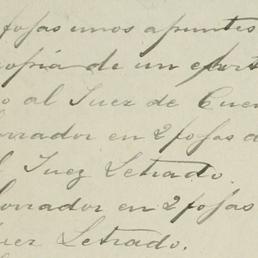 fojas unos apuntes
copia de un exhort
o al Juez de Cuen
orrador en 2 fojas d
l Juez Letrado.
borrador en 2 fojas
uez Letrado.